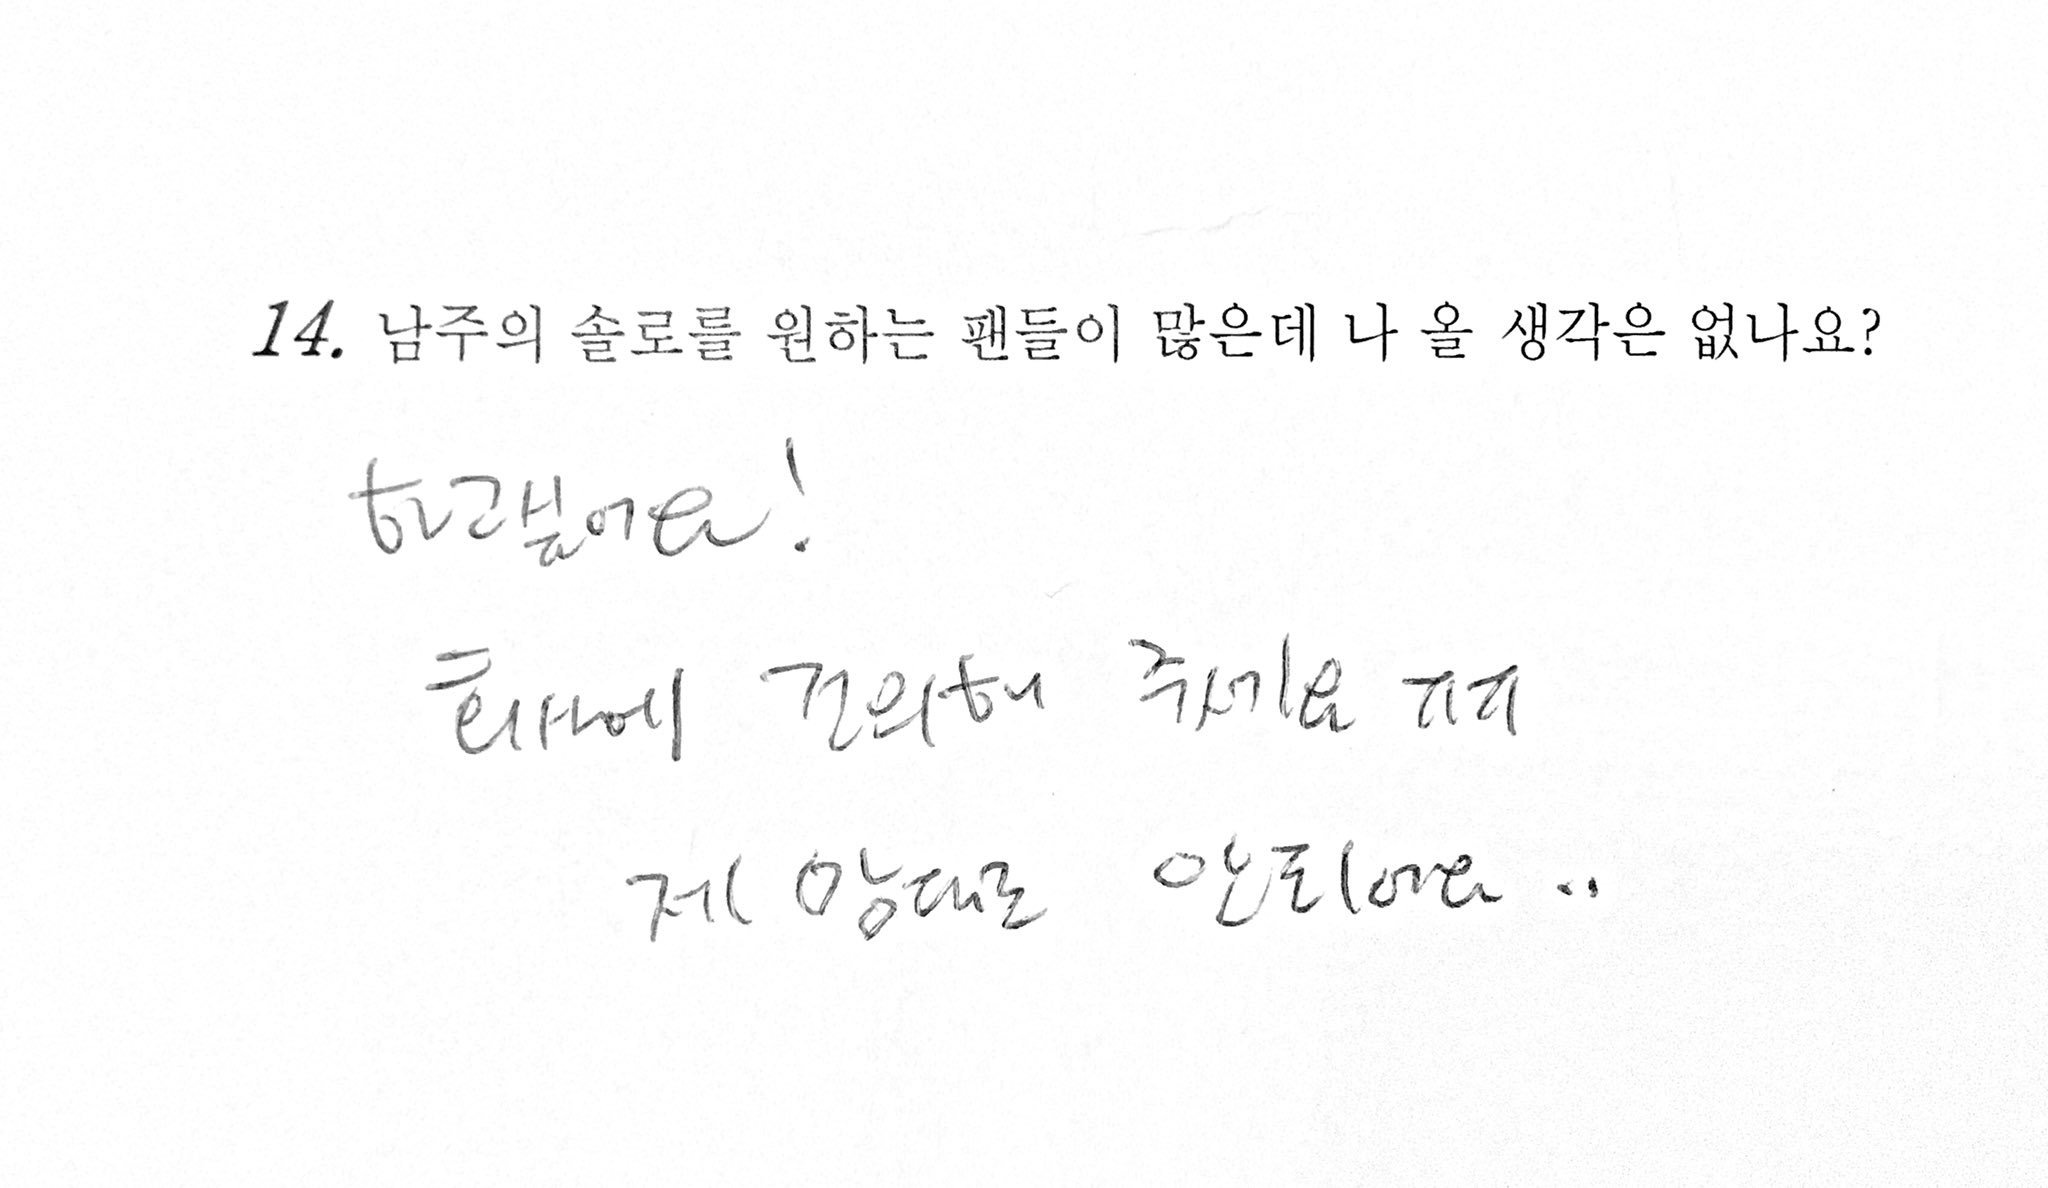 14. 남주의 솔로를 원하는 팬들이 많은데 나 올 생각은 없나요?
하고싶어요!
회사에 건의해 주세요 ㅠㅠ
제 맘대로 안되어요..